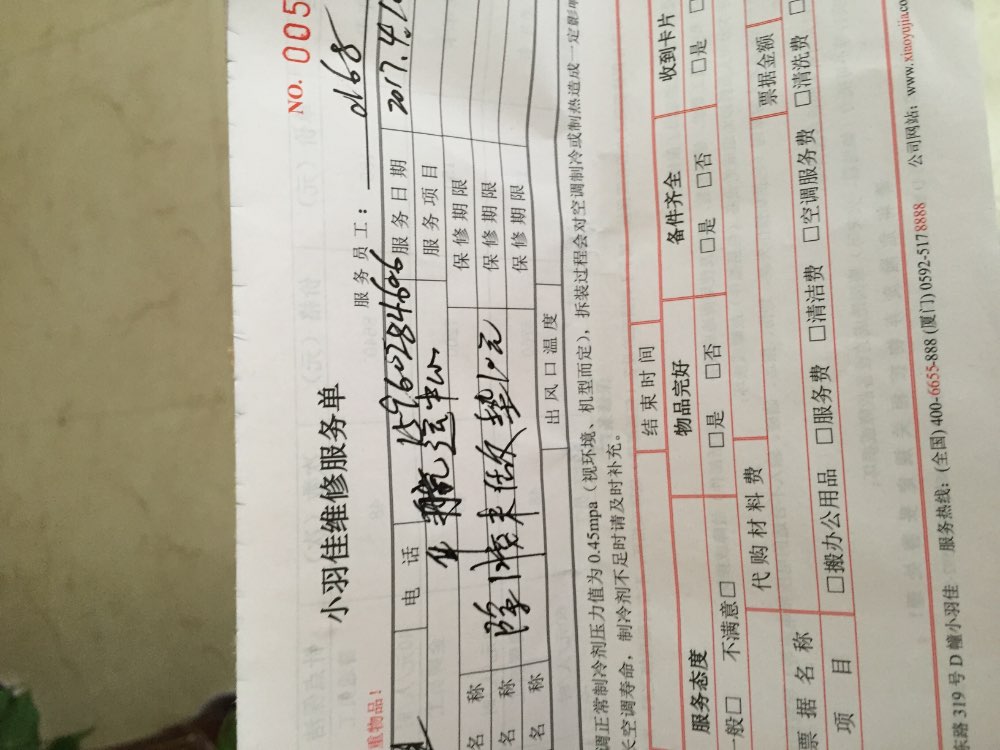 NO. 005
小羽佳维修服务单
服务员工： 0168
重物品！
电 话 15960284606 服务日期 2017.4.1
服务项目
名 称 保修期限
名 称 保修期限
名 称 保修期限
出风口温度
调正常制冷剂压力值为 0.45mpa（视环境、机型而定），拆装过程会对空调制冷或制热造成一定影响
长空调寿命，制冷剂不足时请及时补充。
结束时间
服务态度 物品完好 备件齐全 收到卡片
一般□ 不满意□ □是 □否 □是 □否 □是
代购材料费
票据名称 票据金额
项 目 □搬办公用品 □服务费 □清洁费 □空调服务费 □清洗费
东路 319 号 D 幢小羽佳 服务热线：(全国) 400-6655-888 (厦门) 0592-5178888 公司网站：www.xiaoyujia.co